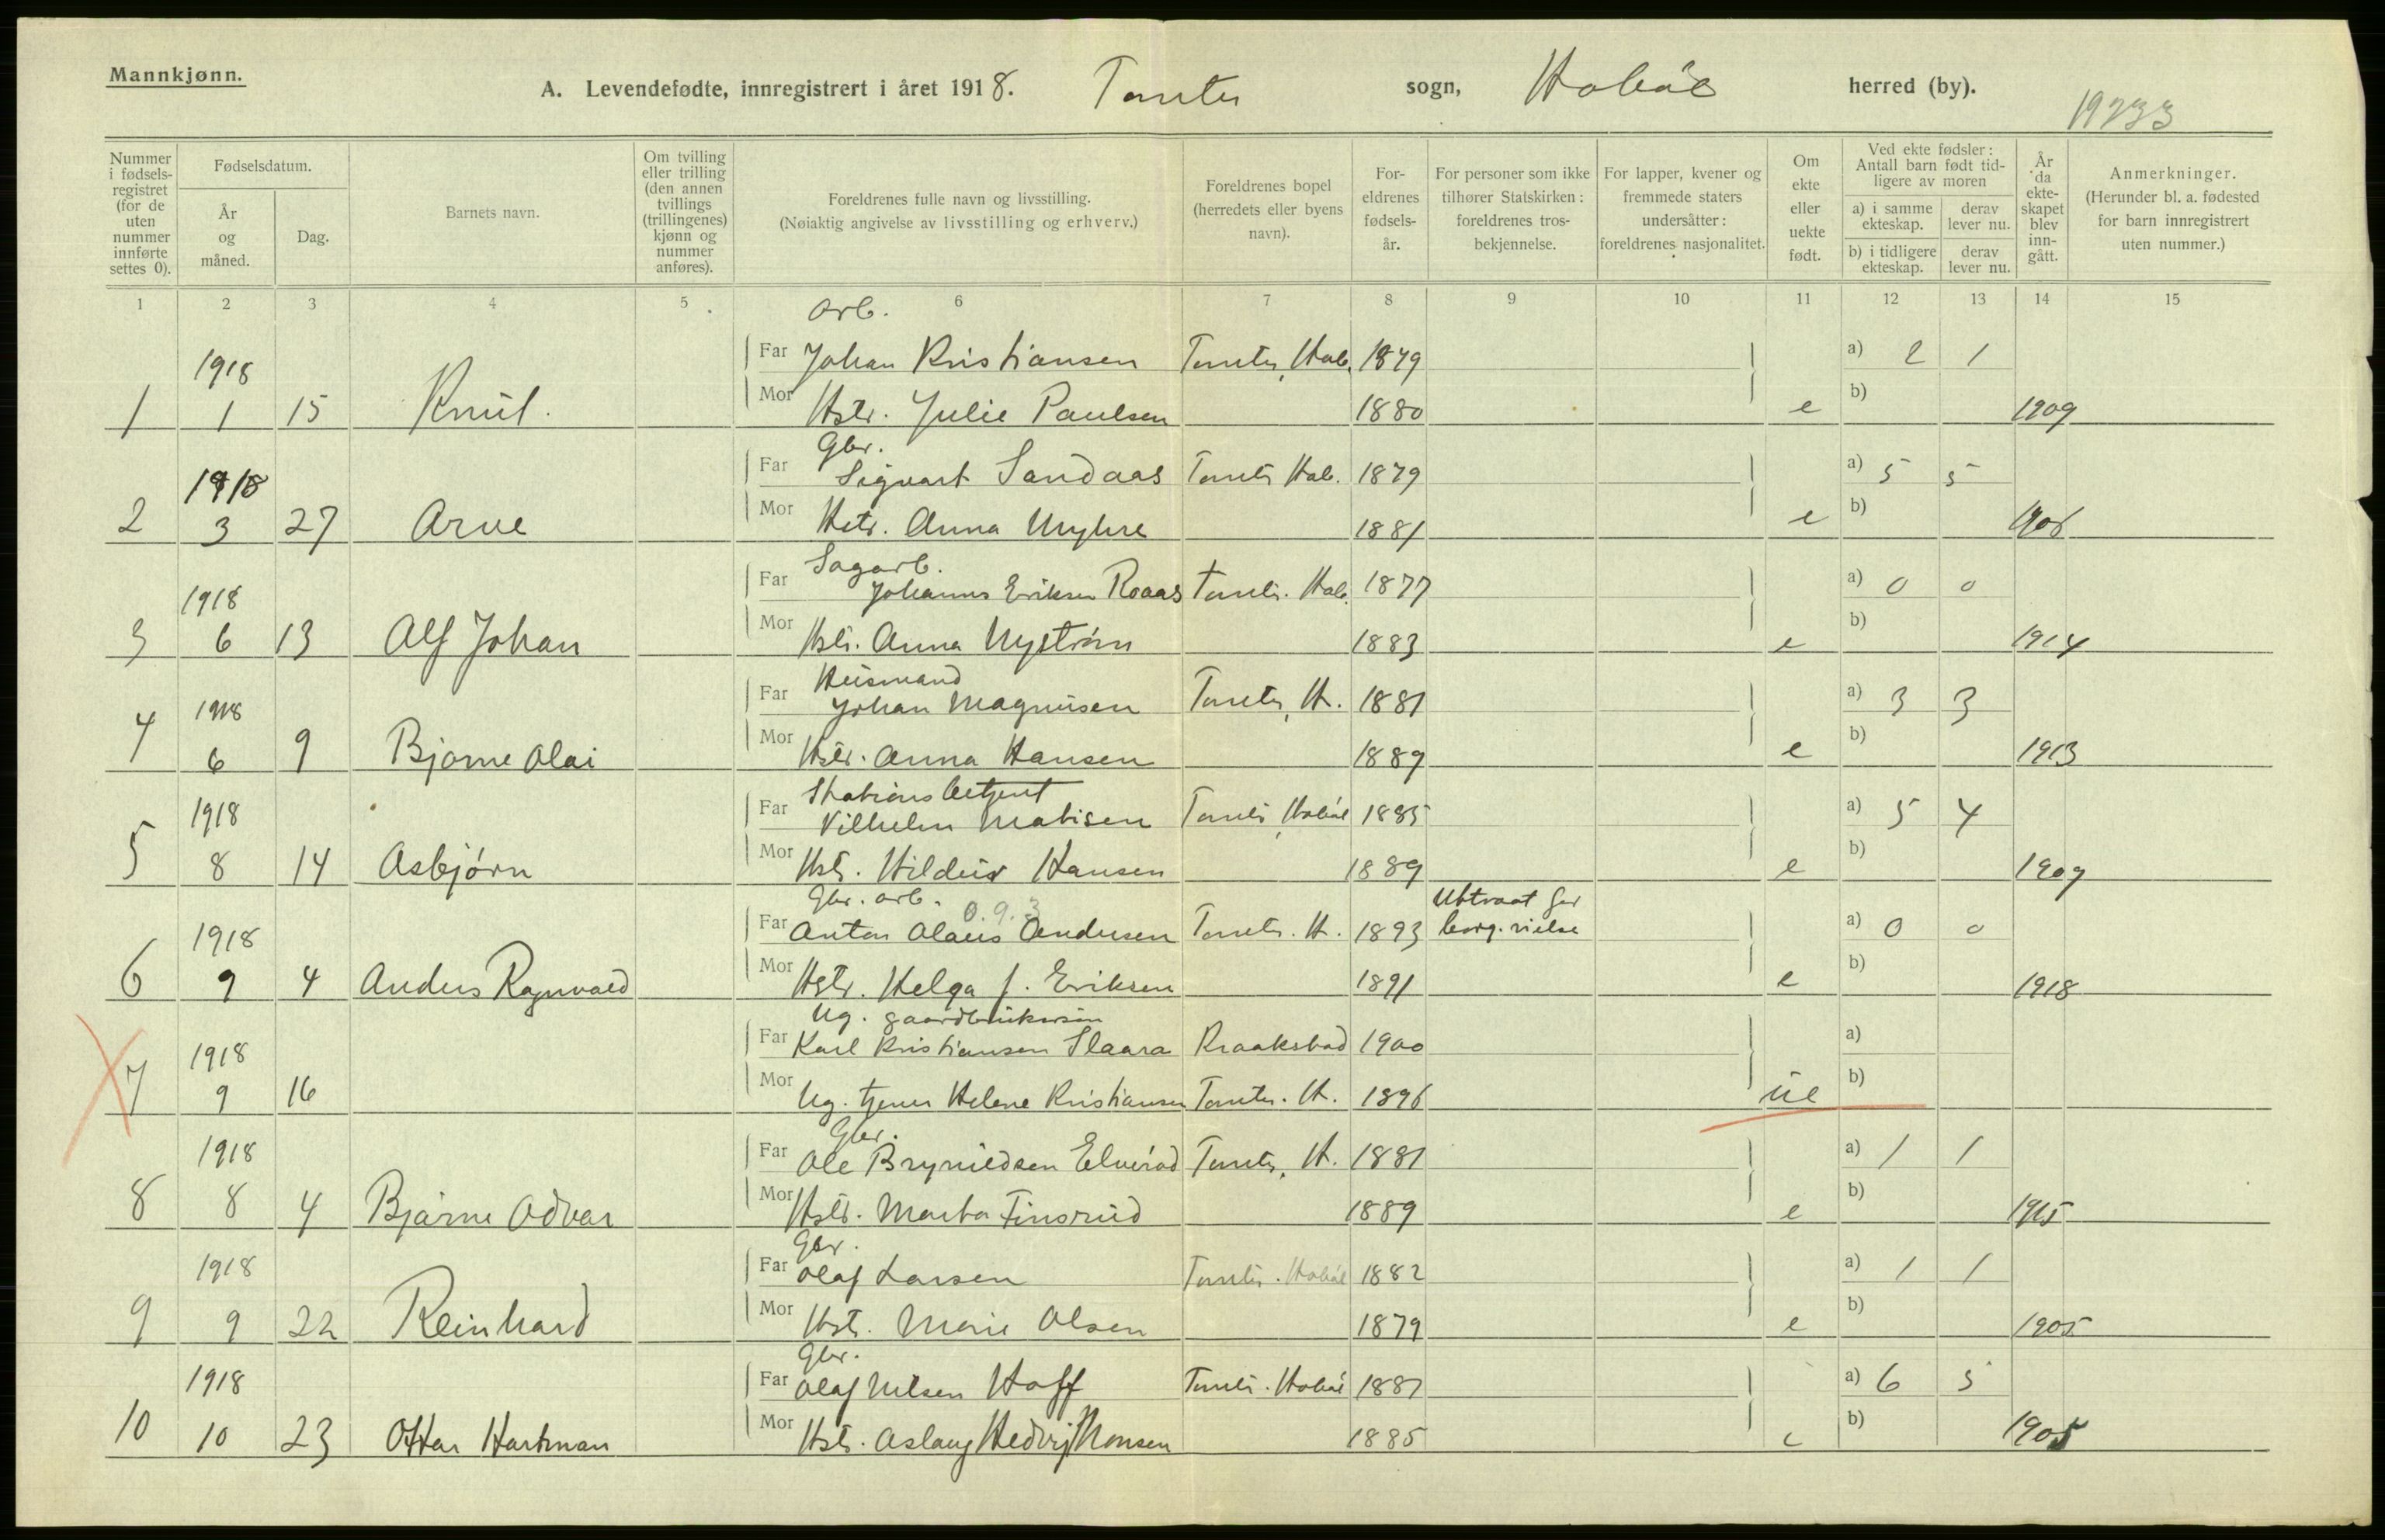 Mannkjønn.
A. Levendefødte, innregistrert i året 1918. Tomter sogn, Hobøl herred (by).
19233
Nummer i fødselsregistret (for de uten nummer innførte settes 0).
Fødselsdatum.
År og måned.
Dag.
Barnets navn.
Om tvilling eller trilling (den annen tvillings (trillingenes) kjønn og nummer anføres).
Foreldrenes fulle navn og livsstilling.
(Nøiaktig angivelse av livsstilling og erhverv.)
Foreldrenes bopel (herredets eller byens navn).
Foreldrenes fødselsår.
For personer som ikke tilhører Statskirken: foreldrenes trosbekjennelse.
For lapper, kvener og fremmede staters undersåtter: foreldrenes nasjonalitet.
Om ekte eller uekte født.
Ved ekte fødsler: Antall barn født tidligere av moren
a) i samme ekteskap.
derav lever nu.
b) i tidligere ekteskap.
derav lever nu.
År da ekteskapet blev inngått.
Anmerkninger.
(Herunder bl. a. fødested for barn innregistrert uten nummer.)
1 2 3 4 5 6 7 8 9 10 11 12 13 14 15
Arb.
1918 Far Johan Kristiansen Tomter, Hob. 1879 a) 2 1
1 1 15 Knut. Mor Hstr. Julie Paulsen 1880 e b) 1909
Gbr.
1918 Far Sigvart Sandaas Tomter Hob. 1879 a) 5 5
2 3 27 Arve Mor Hstr. Anna Myhre 1881 e b) 1906
Sagarb.
1918 Far Johannes Eriksen Roaas Tomter. Hob. 1877 a) 0 0
3 6 13 Alf Johan Mor Hstr. Anna Nyström 1883 e b) 1914
Husmand
1918 Far Johan Magnusen Tomter, H. 1881 a) 3 3
4 6 9 Bjarne Olai Mor Hstr. Anna Hansen 1889 e b) 1913
Stationsbetjent
1918 Far Vilhelm Matisen Tomter, Hobøl 1885 a) 5 4
5 8 14 Asbjørn Mor Hstr. Hildur Hansen 1889 e b) 1909
Gbr. arb. 0.9.3 Uttraat før
1918 Far Anton Olaus Andersen Tomter. H. 1893 borg. vielse a) 0 0
6 9 4 Anders Ragnvald Mor Hstr. Helga J. Eriksen 1891 e b) 1918
Ug. gaardbrukersøn
1918 Far Karl Kristiansen Slaara Kraakstad 1900 a)
7 9 16 Mor Ug. tjener Helene Kristiansen Tomter. H. 1896 ue b)
Gbr.
1918 Far Ole Brynildsen Elverød Tomter, H. 1881 a) 1 1
8 8 4 Bjarne Odvar Mor Hstr. Marta Finsrud 1889 e b) 1915
Gbr.
1918 Far Olaf Larsen Tomter. Hobøl 1882 a) 1 1
9 9 22 Reinhard Mor Hstr. Marie Olsen 1879 e b) 1905
Gbr.
1918 Far Olaf Nilsen Hoff Tomter. Hobøl 1881 a) 6 5
10 10 23 Ottar Hartman Mor Hstr. Aslaug Hedvig Monsen 1885 e b) 1905